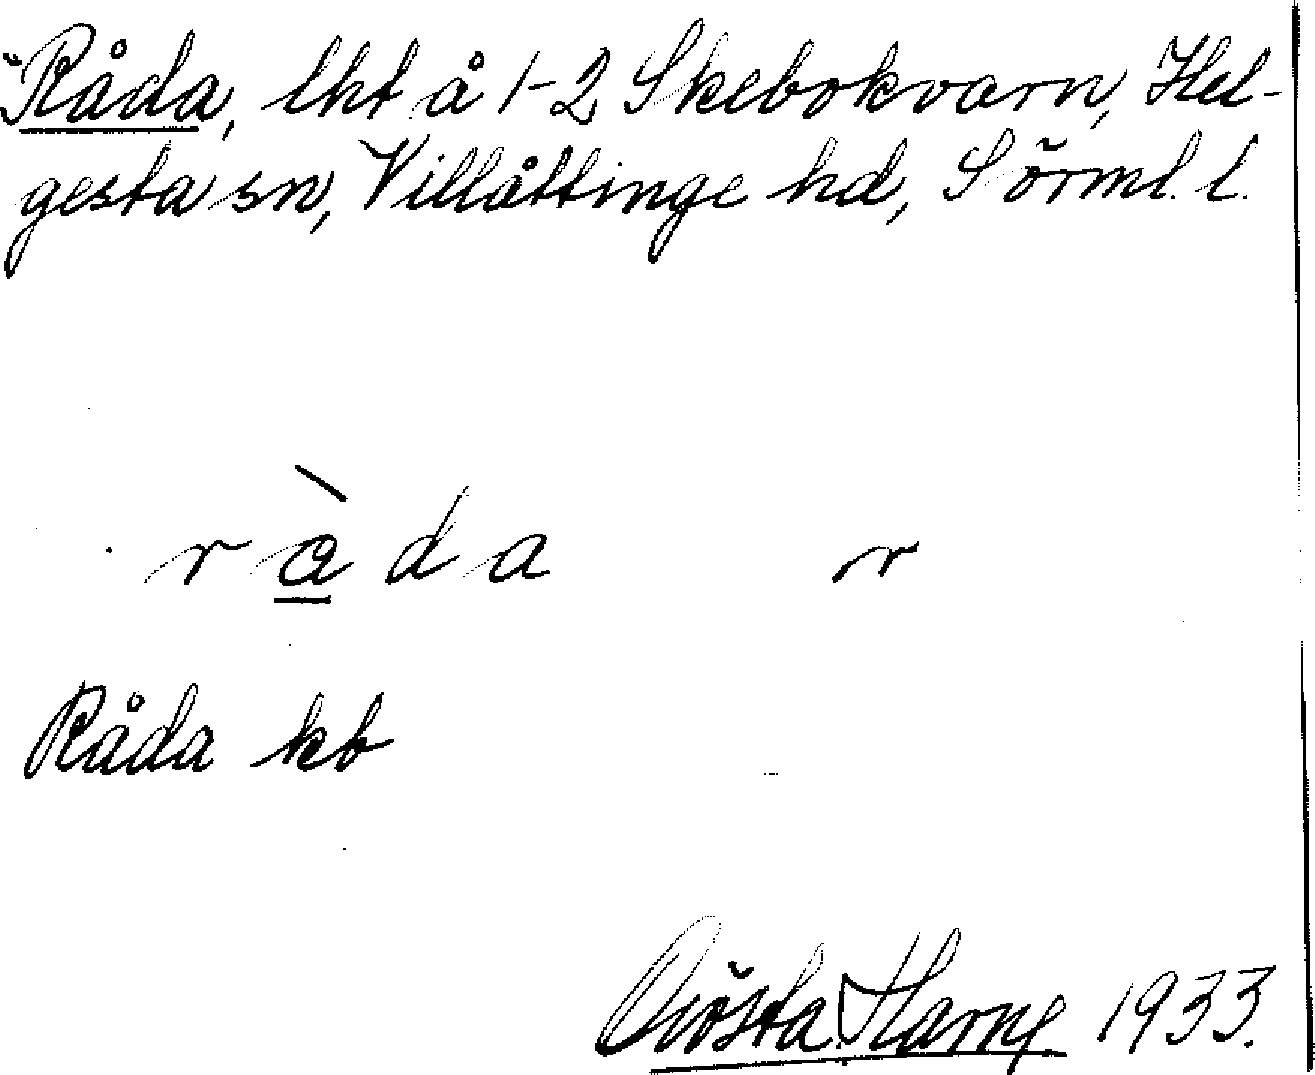 Råda, lht å 1-2 Skebokvarn, Hel-
gesta sn, Villåttinge hd, Sörml. l.
ràda r
Råda kb
Gösta Harne 1933.